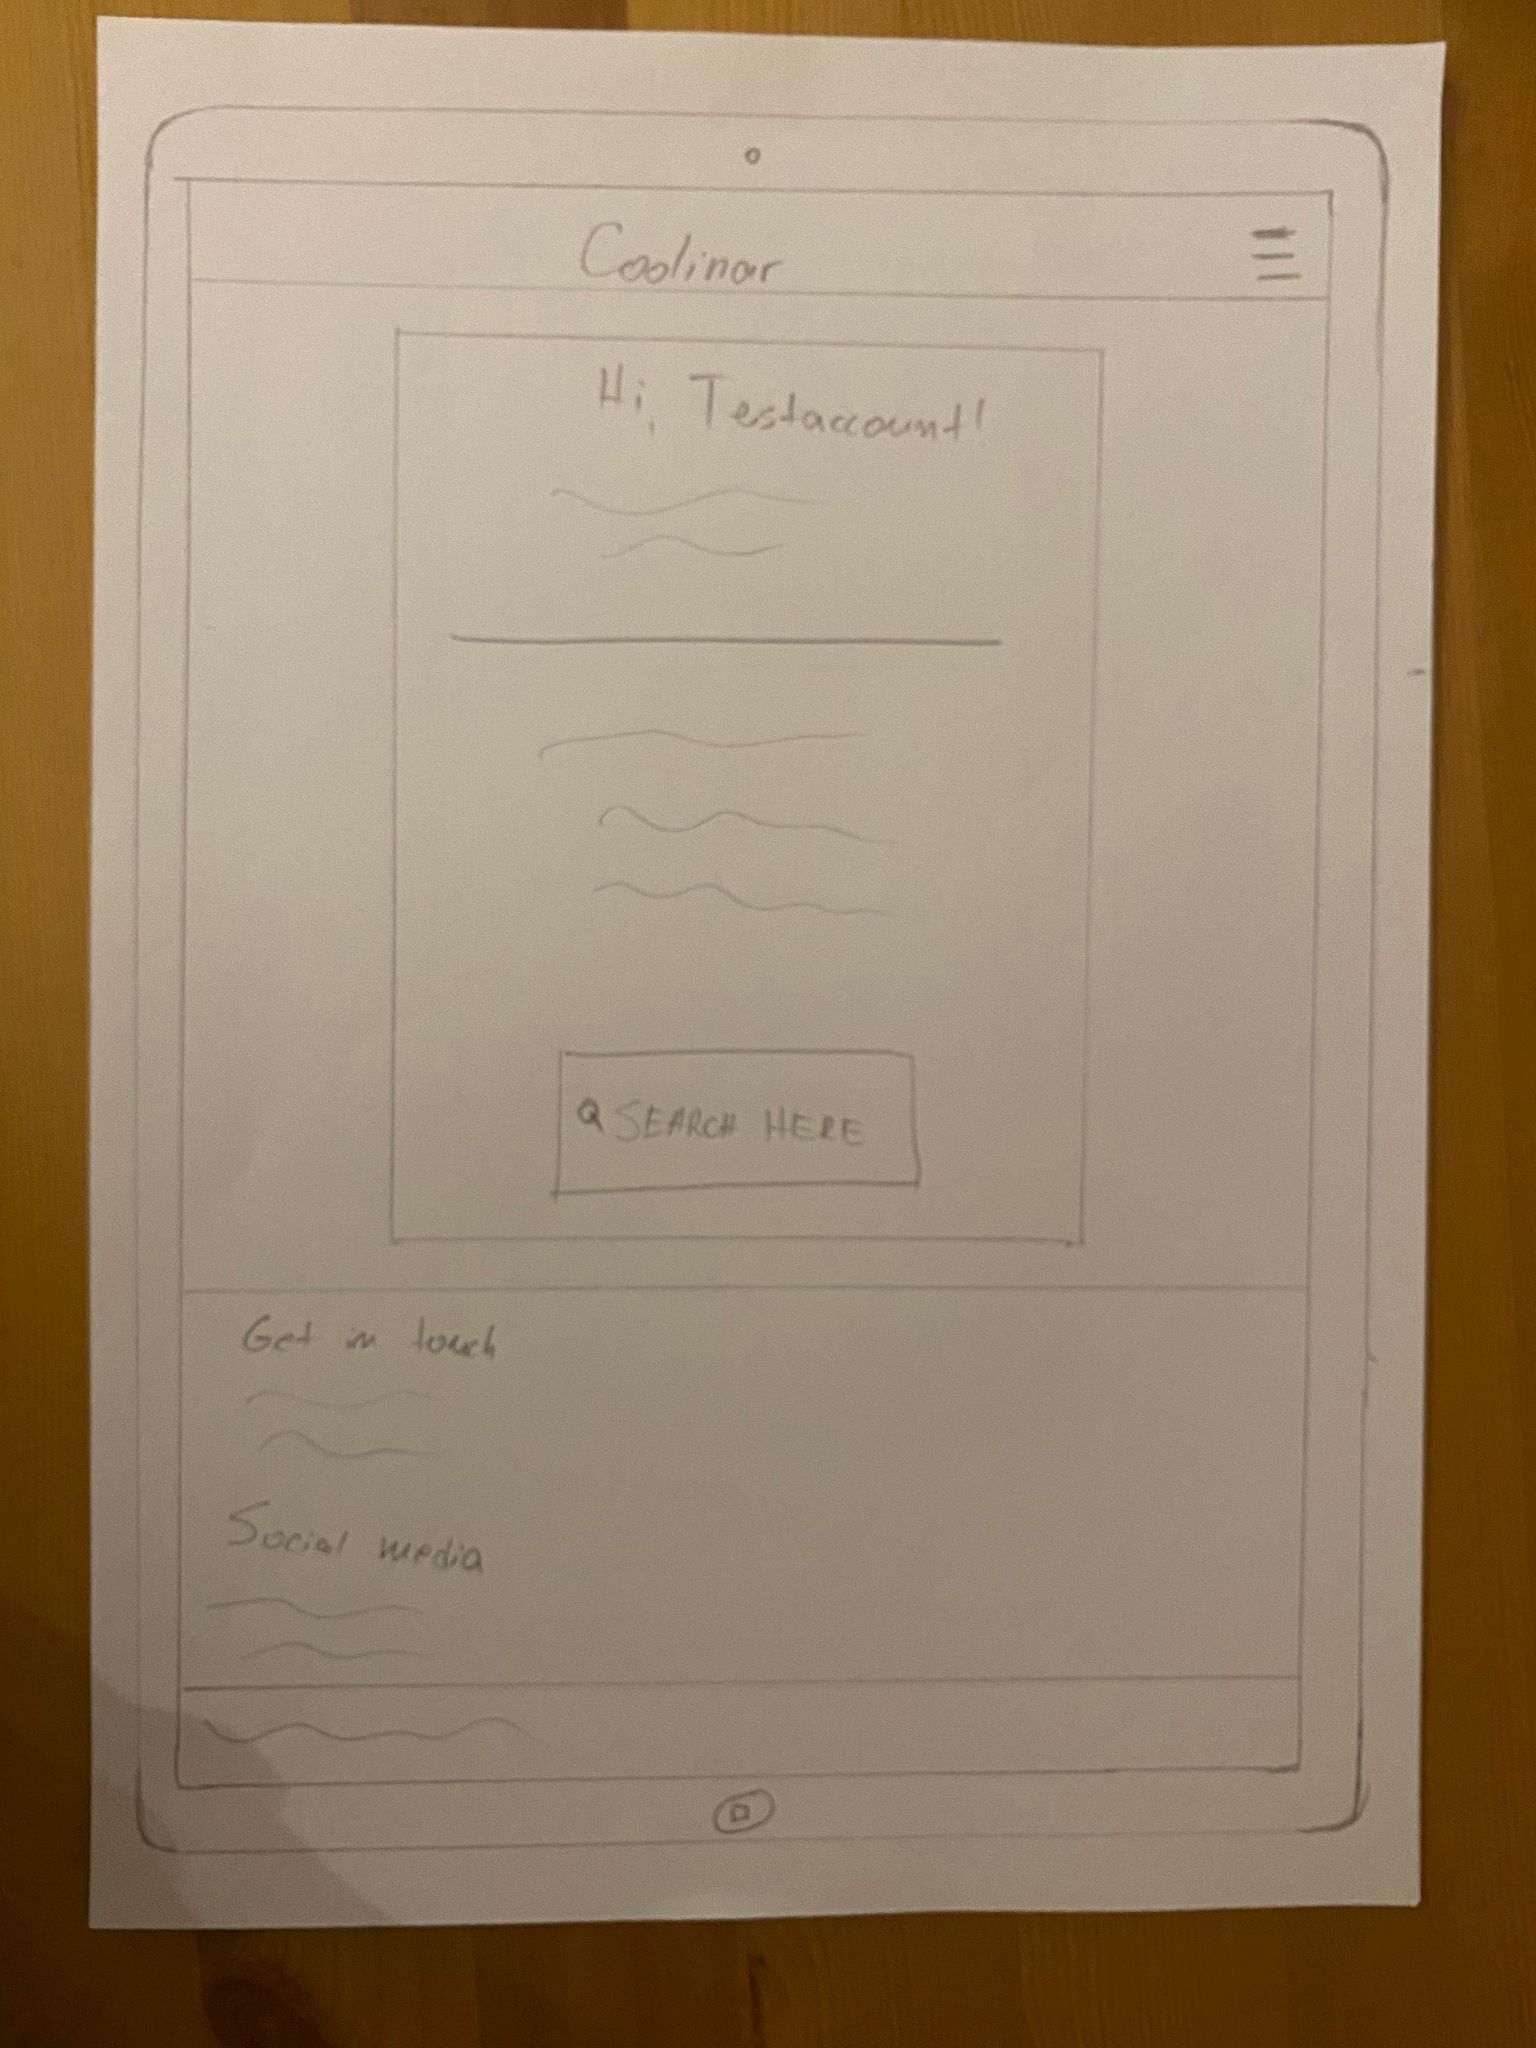 Coolinar
Hi, Testaccount!
SEARCH HERE
Get in touch
Social media